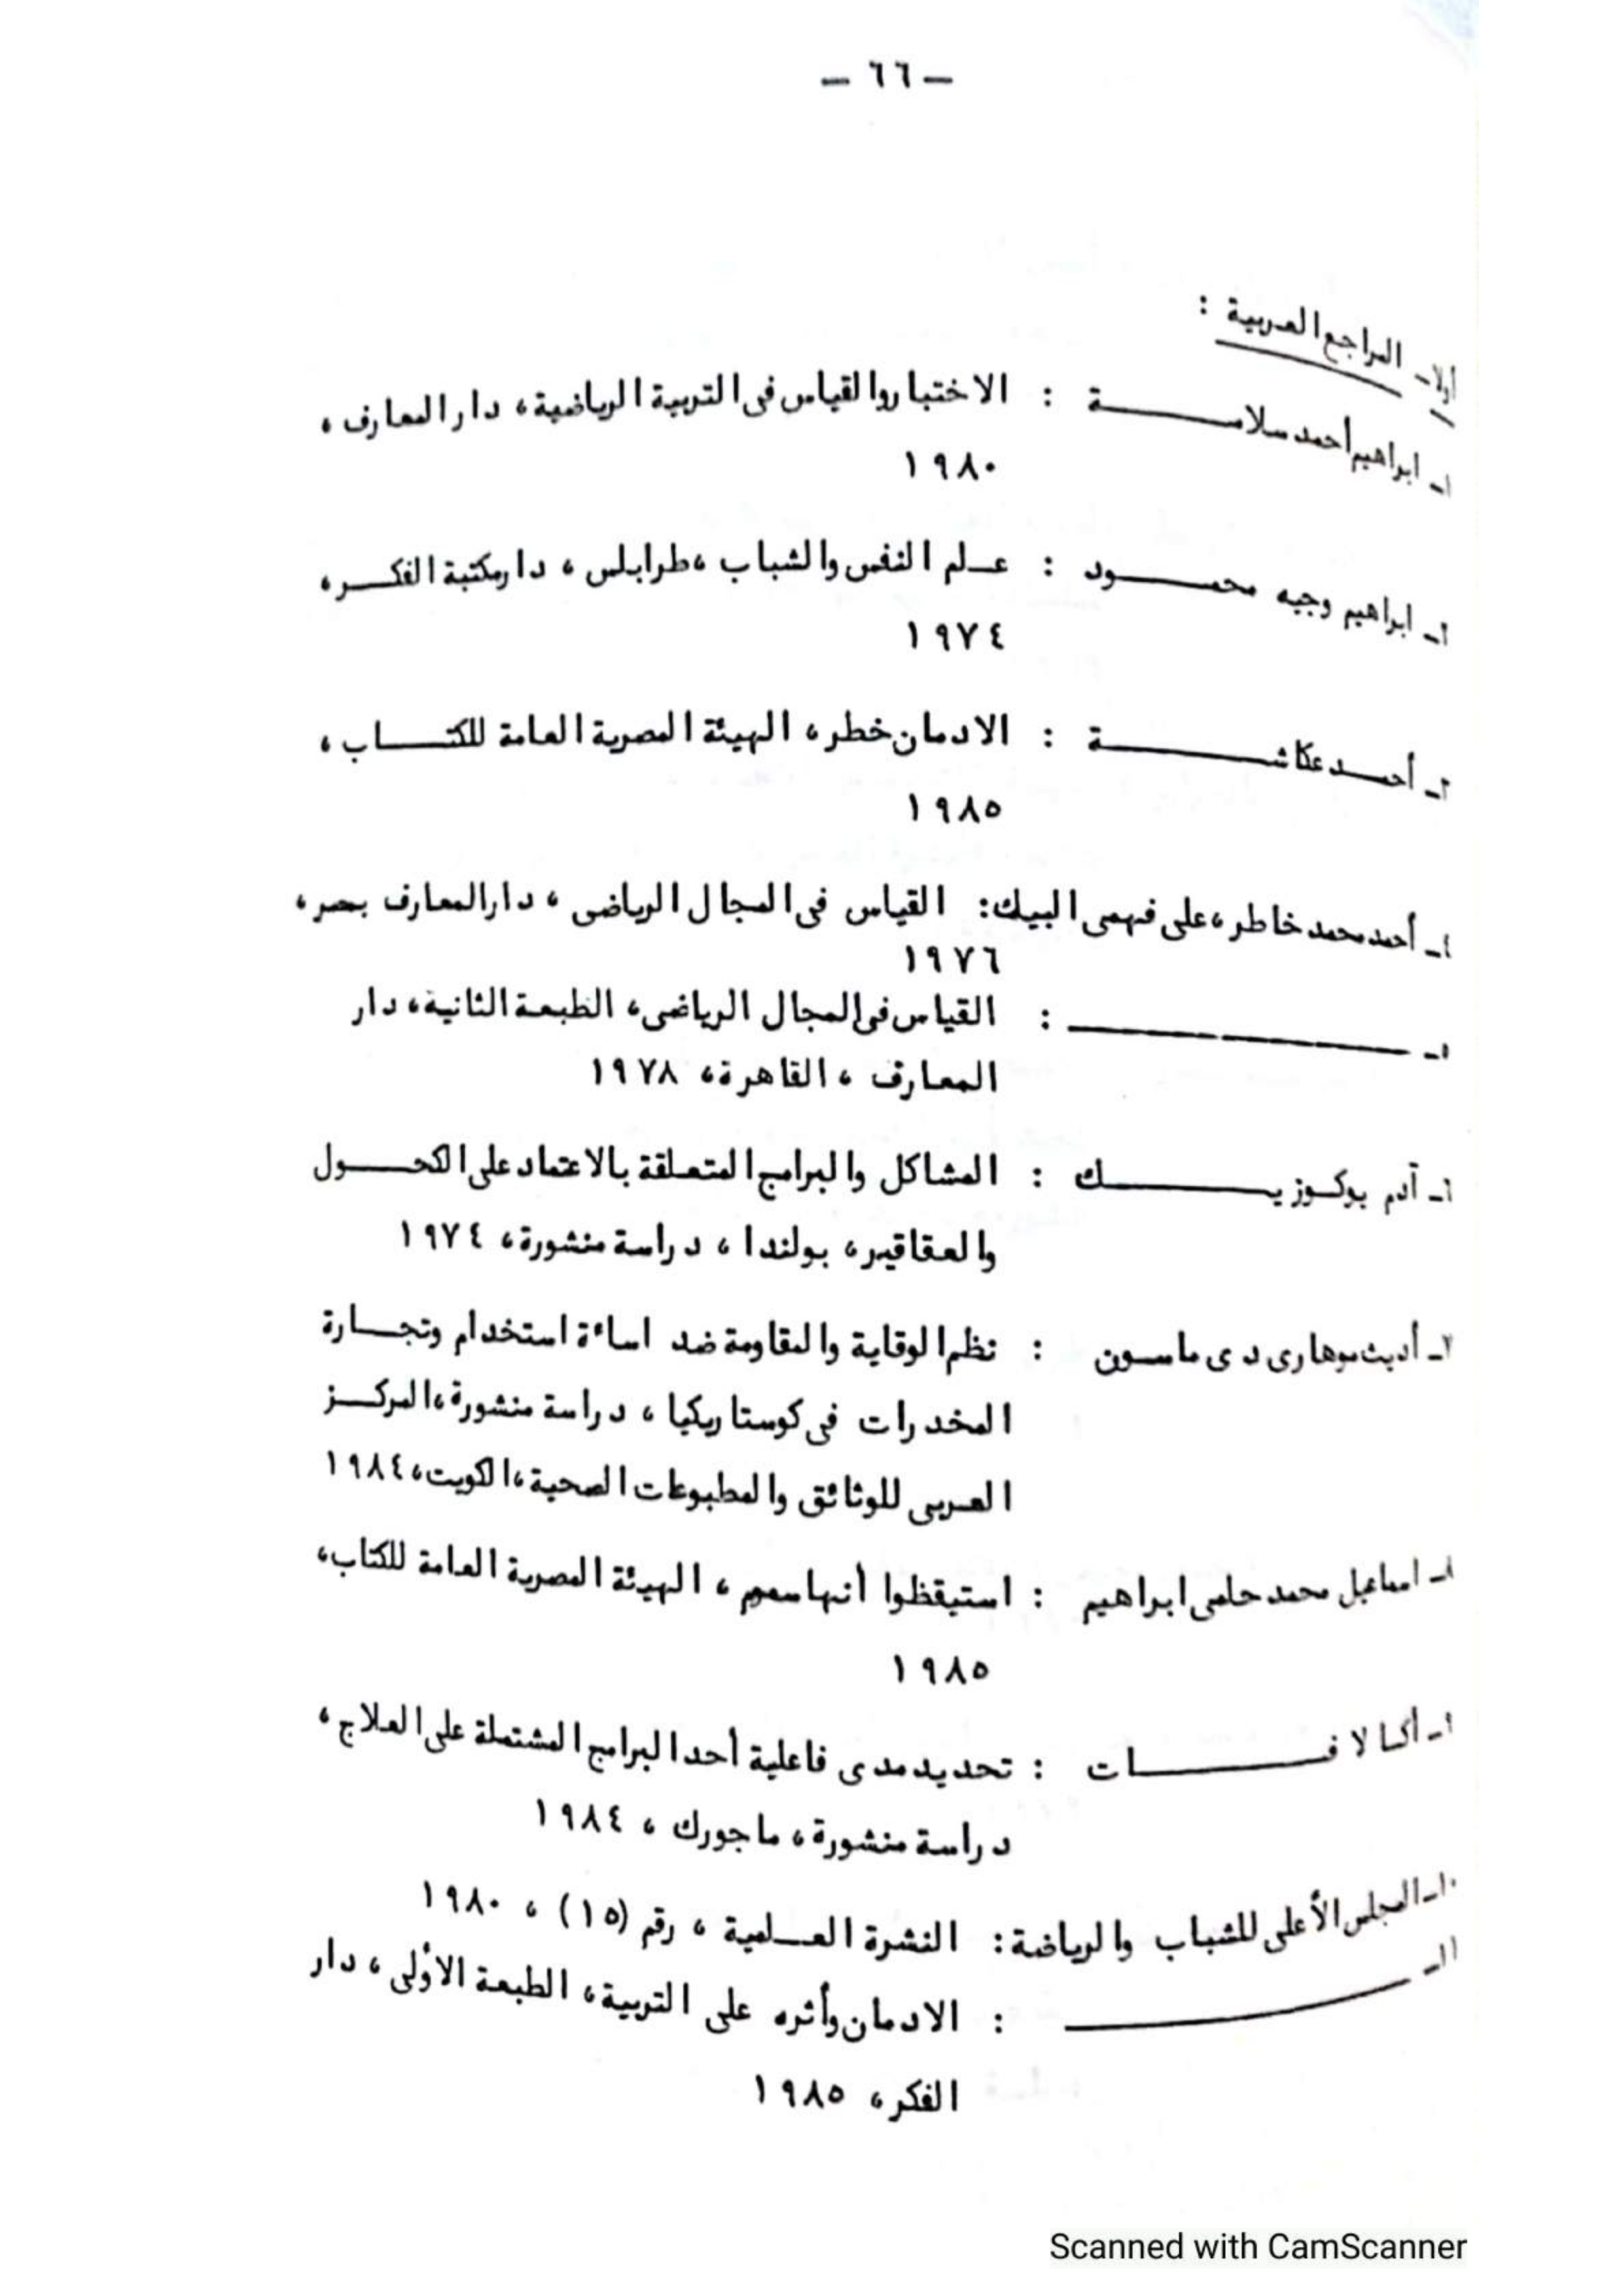 — ٦٦ —
أولا- المراجع العربية :
١- ابراهيم أحمد سلامة : الاختبار والقياس فى التربية الرياضية، دار المعارف ،
١٩٨٠
٢- ابراهيم وجيه محمود : علم النفس والشباب ، طرابلس ، دار مكتبة الفكر ،
١٩٧٤
٣- أحمد عكاشة : الادمان خطر ، الهيئة المصرية العامة للكتاب ،
١٩٨٥
٤- أحمد محمد خاطر ، على فهمى البيك : القياس فى المجال الرياضى ، دار المعارف بمصر ،
١٩٧٦
٥- ــــــــــــ : القياس فى المجال الرياضى، الطبعة الثانية، دار
المعارف ، القاهرة، ١٩٧٨
٦- آدم بوكوزيك : المشاكل والبرامج المتعلقة بالاعتماد على الكحول
والعقاقير، بولندا ، دراسة منشورة، ١٩٧٤
٧- أديث موهارى دى ماسون : نظم الوقاية والمقاومة ضد اساءة استخدام وتجارة
المخدرات فى كوستاريكيا ، دراسة منشورة، المركز
العربى للوثائق والمطبوعات الصحية، الكويت، ١٩٨٤
٨- اسماعيل محمد حلمى ابراهيم : استيقظوا أنها سموم ، الهيئة المصرية العامة للكتاب،
١٩٨٥
٩- أكالافات : تحديد مدى فاعلية أحد البرامج المشتملة على العلاج ،
دراسة منشورة، ماجورك ، ١٩٨٤
١٠- المجلس الأعلى للشباب والرياضة : النشرة العلمية ، رقم (١٥) ، ١٩٨٠
١١- ــــــــــــ : الادمان وأثره على التربية، الطبعة الأولى ، دار
الفكر، ١٩٨٥
Scanned with CamScanner